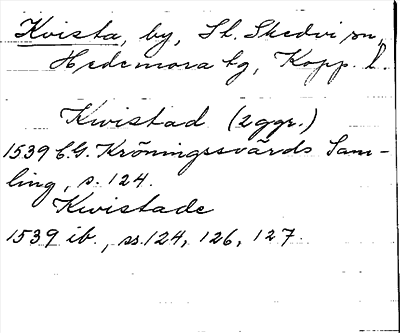 Kvista, by, St. Skedvi sn,
Hedemora tg, Kopp. l.
Kwistad (2 ggr.)
1539 C.G. Kröningssvärds Sam-
ling, s. 124.
Kwistade
1539 ib., ss. 124, 126, 127.